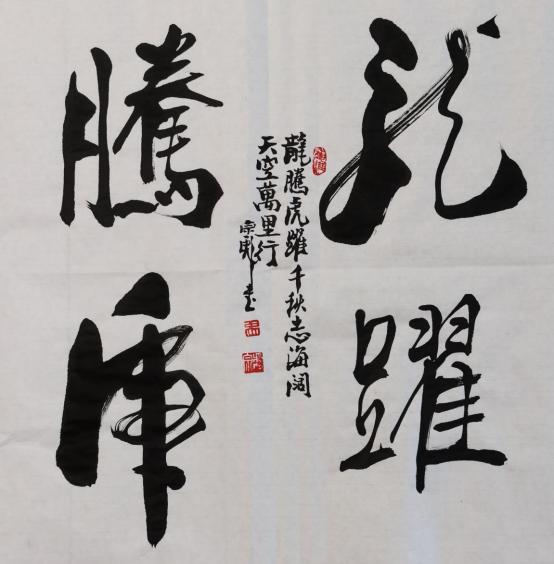 龍騰
虎躍
龍騰虎躍千秋志海闊
天空萬里行